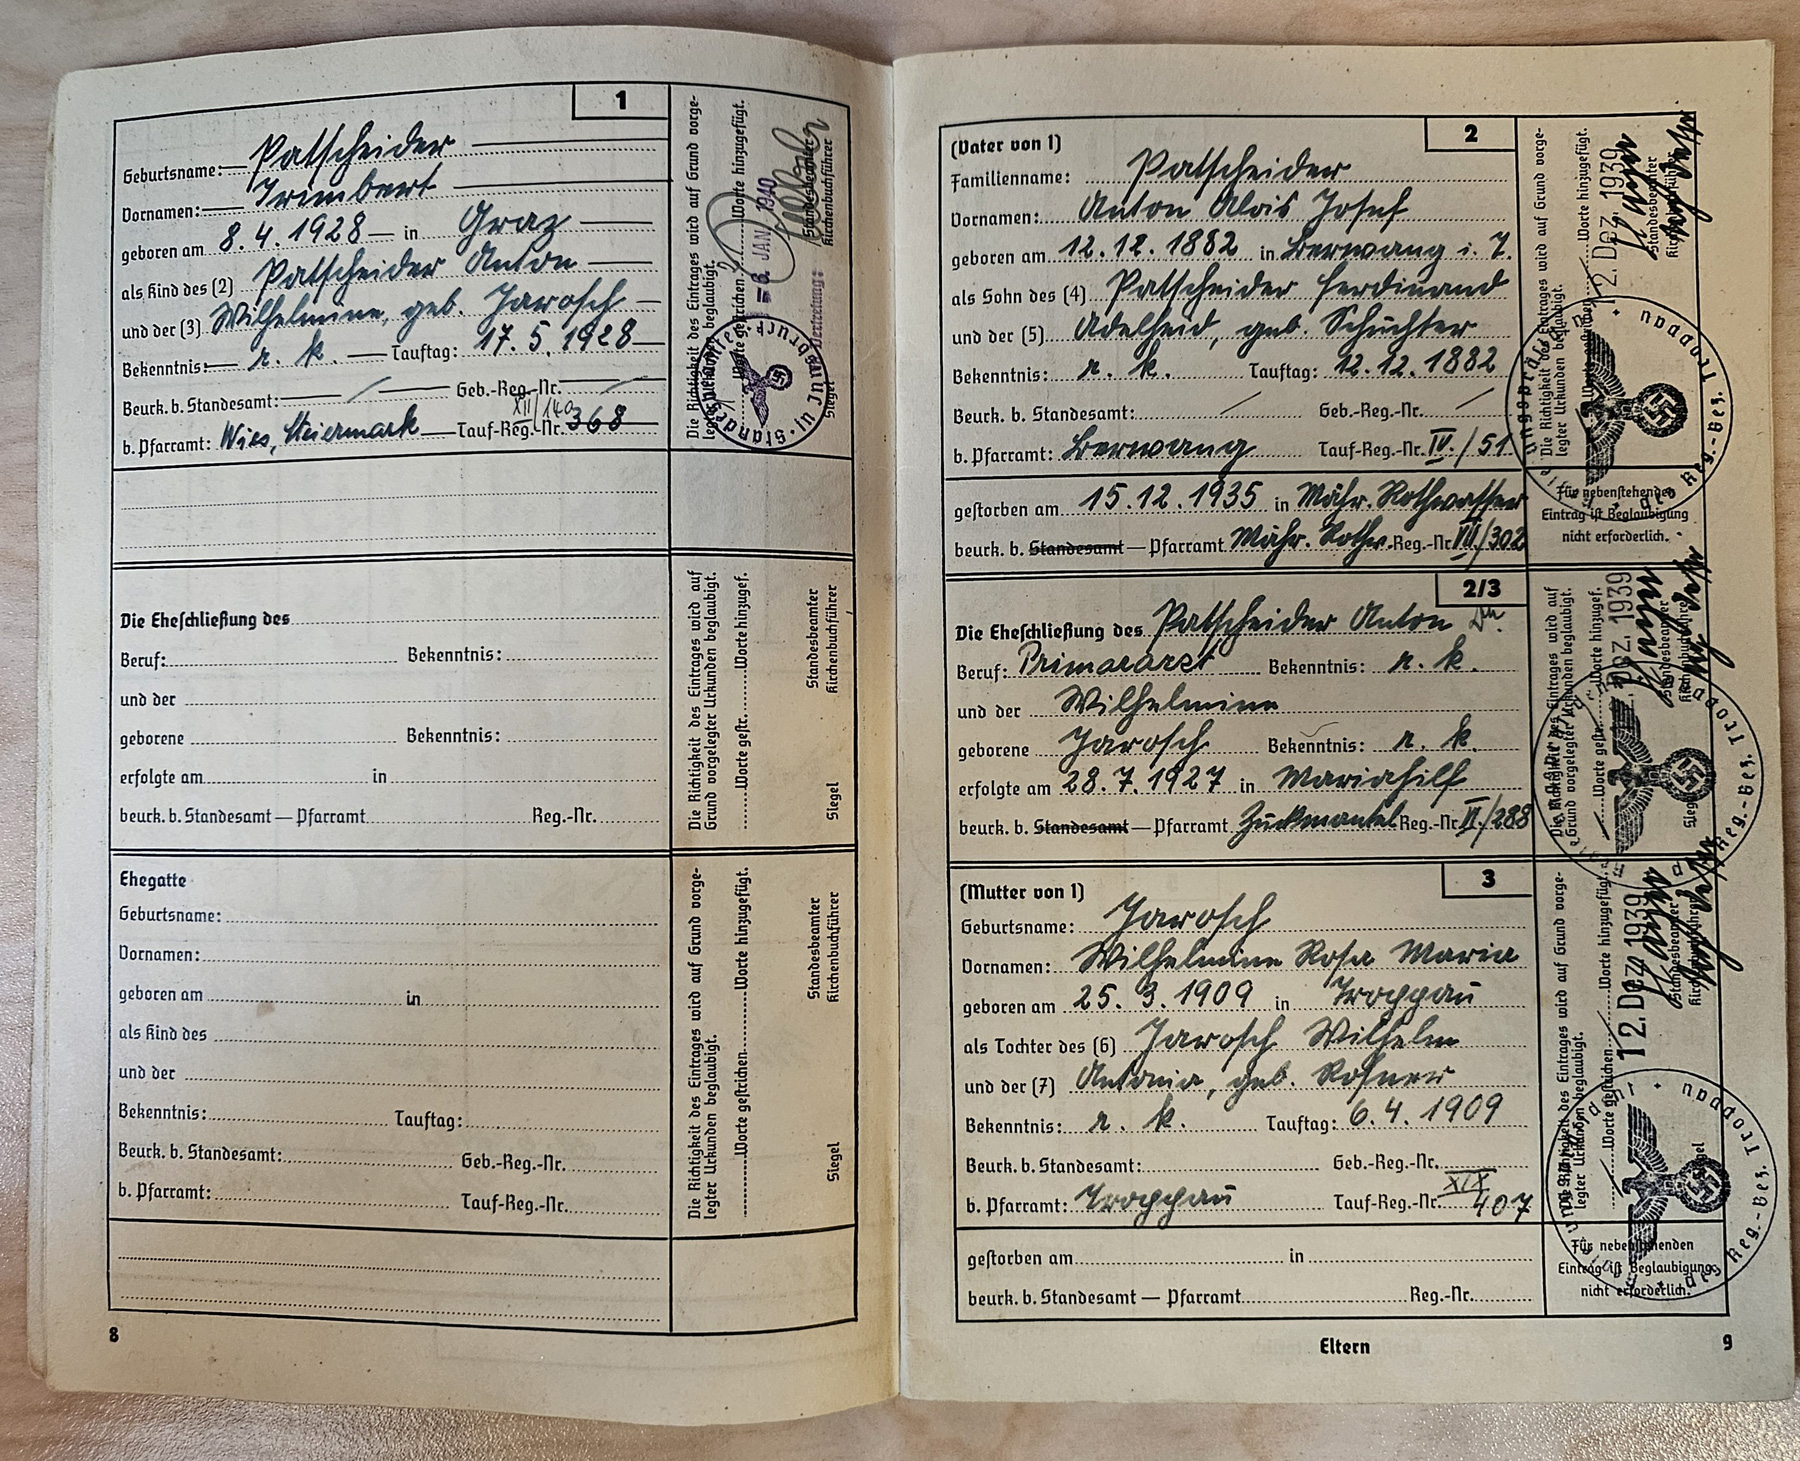 1
Geburtsname: Patscheider
Vornamen: Irimbert
geboren am 8.4.1928 in Graz
als Kind des (2) Patscheider Anton
und der (3) Wilhelmine, geb. Jarosch
Bekenntnis: r. k. Tauftag: 17.5.1928
Beurk. b. Standesamt: Geb.-Reg.-Nr.
XII/140
b. Pfarramt: Wies, Steiermark Tauf-Reg.-Nr. 368
Die Richtigkeit des Eintrages wird auf Grund vorge-
legter Urkunden beglaubigt.
Worte gestrichen Worte hinzugefügt.
6. JAN 1940
In Vertretung:
Standesbeamter
Kirchenbuchführer
Siegel
Die Eheschließung des
Beruf: Bekenntnis:
und der
geborene Bekenntnis:
erfolgte am in
beurk. b. Standesamt — Pfarramt Reg.-Nr.
Die Richtigkeit des Eintrages wird auf
Grund vorgelegter Urkunden beglaubigt.
Worte gestr. Worte hinzugef.
Standesbeamter
Kirchenbuchführer
Siegel
Ehegatte
Geburtsname:
Vornamen:
geboren am in
als Kind des
und der
Bekenntnis: Tauftag:
Beurk. b. Standesamt: Geb.-Reg.-Nr.
b. Pfarramt: Tauf-Reg.-Nr.
Die Richtigkeit des Eintrages wird auf Grund vorge-
legter Urkunden beglaubigt.
Worte gestrichen Worte hinzugefügt.
Standesbeamter
Kirchenbuchführer
Siegel
8
2
(Vater von 1)
Familienname: Patscheider
Vornamen: Anton Alois Josef
geboren am 12.12.1882 in Berwang i. T.
als Sohn des (4) Patscheider Ferdinand
und der (5) Adelheid, geb. Schuchter
Bekenntnis: r. k. Tauftag: 12.12.1882
Beurk. b. Standesamt: Geb.-Reg.-Nr.
b. Pfarramt: Berwang Tauf-Reg.-Nr. IV./51
gestorben am 15.12.1935 in Mähr. Rothwasser
beurk. b. Standesamt — Pfarramt Mähr. Rothw. Reg.-Nr. VII/302
Die Richtigkeit des Eintrages wird auf Grund vorge-
legter Urkunden beglaubigt.
Worte hinzugefügt.
12. Dez. 1939
Standesbeamter
Kirchenbuchführer
des Reg.-Bez. Troppau
Für nebenstehenden
Eintrag ist Beglaubigung
nicht erforderlich.
2/3
Die Eheschließung des Patscheider Anton Dr.
Beruf: Primararzt Bekenntnis: r. k.
und der Wilhelmine
geborene Jarosch Bekenntnis: r. k.
erfolgte am 28.7.1927 in Mariahilf
beurk. b. Standesamt — Pfarramt Zuckmantel Reg.-Nr. VI/288
Die Richtigkeit des Eintrages wird auf
Grund vorgelegter Urkunden beglaubigt.
Worte gestr. Worte hinzugef.
Dez. 1939
Standesbeamter
Kirchenbuchführer
Siegel
Reg.-Bez. Troppau
3
(Mutter von 1)
Geburtsname: Jarosch
Vornamen: Wilhelmine Rosa Maria
geboren am 25.3.1909 in Troppau
als Tochter des (6) Jarosch Wilhelm
und der (7) Antonia, geb. Rosner
Bekenntnis: r. k. Tauftag: 6.4.1909
Beurk. b. Standesamt: Geb.-Reg.-Nr.
XIX
b. Pfarramt: Troppau Tauf-Reg.-Nr. 407
gestorben am in
beurk. b. Standesamt — Pfarramt Reg.-Nr.
Die Richtigkeit des Eintrages wird auf Grund vorge-
legter Urkunden beglaubigt.
Worte gestrichen Worte hinzugefügt.
12. Dez. 1939
Standesbeamter
Kirchenbuchführer
Siegel
des Reg.-Bez. Troppau
Für nebenstehenden
Eintrag ist Beglaubigung
nicht erforderlich.
Eltern
9